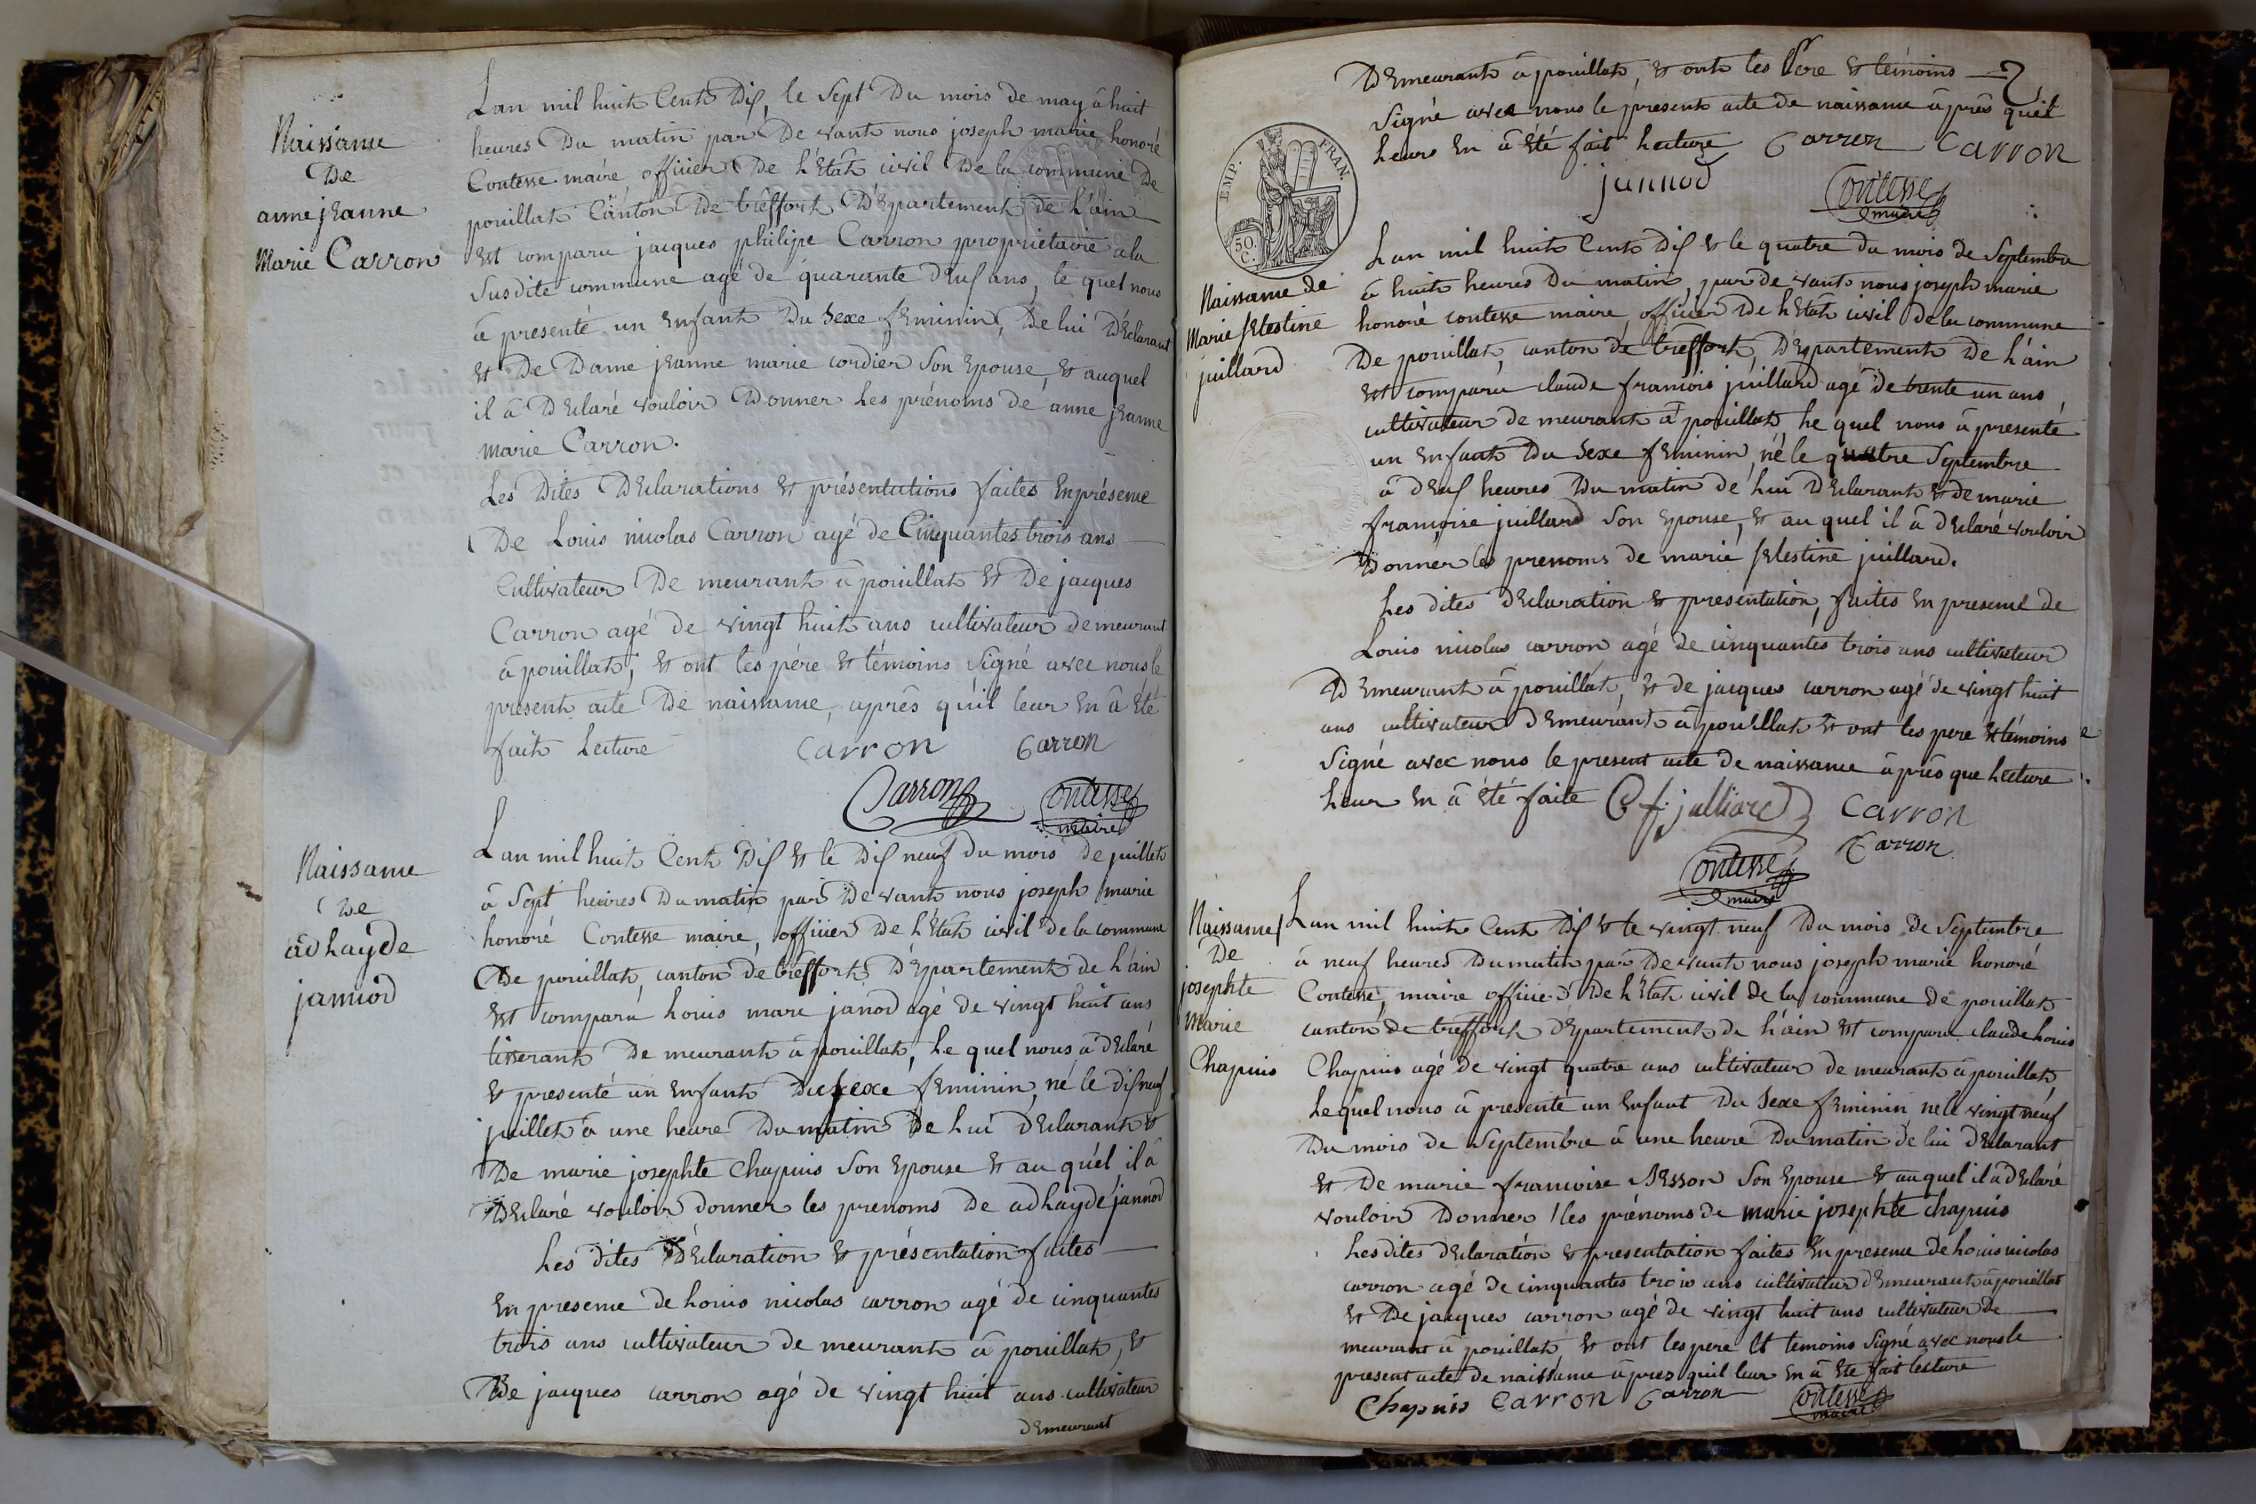 Naissance
De
anne jeanne
Marie Carron
Lan mil huit Cent Dix, le Sept Du mois de may à huit
heures Du matin par De vant nous joseph marie honoré
Contesse maire officier De l'Etat civil De la commune De
pouillat Canton De treffort Département de l'ain
Est comparu jacques philipe Carron proprietaire a la
Susdite commune agé de quarante deux ans, le quel nous
à presenté un Enfant Du Sexe feminin, De lui Déclarant
et De Dame jeanne marie cordier Son Epouse, et auquel
il à Déclaré vouloir Donner les prénoms de anne jeanne
marie Carron.
Les Dites Déclarations et présentations faites En présence
De Louis nicolas Carron agé de Cinquantes trois ans
Cultivateur De meurant à pouillat et De jacques
Carron agé de vingt huit ans cultivateur demeurant
à pouillat; et ont les pére et témoins Signé avec nous le
present acte De naissance, aprês qu'il leur En à Eté
fait Lecture Carron Carron
Carron Contesse
maire
Naissance
De
adhayde
jannod
Lan mil huit Cent Dix et le Dix neuf du mois de juillet
à Sept heures Du matin par De vant nous joseph marie
honoré Contesse maire, officier De l'Etat civil de la commune
De pouillat, canton de treffort Département de l'ain
Est comparu Louis marc janod agé de vingt huit ans
tisserant De meurant à pouillat, Le quel nous à déclaré
et presenté un Enfant Du Sexe feminin, né le dix neuf
juillet à une heure Du matin De Lui Déclarant et
De marie josephte Chapuis Son Epouse et au quel il à
Déclaré vouloir donner les prenoms De adhayde jannod
Les dites Déclaration et présentation faites
En presence de Louis nicolas carron agé de cinquantes
trois ans cultivateur de meurant à pouillat, et
De jacques carron agé de vingt huit ans cultivateur
demeurant
Demeurant à pouillat, et ont les Pere et témoins
Signé avec nous le present acte de naissance àprês qu'il
Leur En à Eté fait Lecture Carron Carron
jannod Contesse
maire
EMP. FRAN.
50.
C.
Naissance de
Marie selestine
juillard
Lan mil huit Cent Dix et le quatre du mois de Septembre
à huit heures Du matin, par de vant nous joseph marie
honoré contesse maire, officier De l'Etat civil De la commune
De pouillat, canton de treffort, Département De l'ain
Est comparu claude francois juillard agé de trente un ans
cultivateur de meurant à pouillat le quel nous à presenté
un Enfant Du Sexe feminin, né le quatre Septembre
à deux heures Du matin de lui Déclarant et de marie
françoise juillard Son Epouse, et au quel il à déclaré vouloir
Donner les prenoms de marie selestine juillard.
Les dites declaration et presentation, faites En presence de
Louis nicolas carron agé de cinquantes trois ans cultivateur
Demeurant à pouillat, et de jacques carron agé de vingt huit
ans cultivateur demeurant à pouillat et ont les pere et témoins
Signé avec nous le present acte de naissance àprês que Lecture
Leur En à été faite C f julliard Carron
Carron
Contesse
maire
Naissance
De
josephte
Marie
Chapuis
Lan mil huit Cent Dix et le vingt neuf Du mois de Septembre
à neuf heures Du matin par De vant nous joseph marie honoré
Contesse, maire officier De l'Etat civil de la commune de pouillat
canton de treffort département De l'ain Est comparu claude Louis
Chapuis agé De vingt quatre ans cultivateur de meurant à pouillat
Lequel nous à presenté un Enfant Du Sexe feminin né le vingt neuf
Du mois de Septembre à une heure Du matin de lui déclarant
et De marie francoise Besson Son Epouse et au quel il à déclaré
vouloir Donner les prénoms de marie josephte chapuis
Les dites declaration et presentation faites En presence de Louis nicolas
carron agé de cinquantes trois ans cultivateur demeurant à pouillat
et De jacques carron agé de vingt huit ans cultivateur de
meurant à pouillat et ont les pere et temoins Signé avec nous le
present acte de naissance àpres quil leur En à Eté fait lecture
Chapuis Carron Carron Contesse
maire